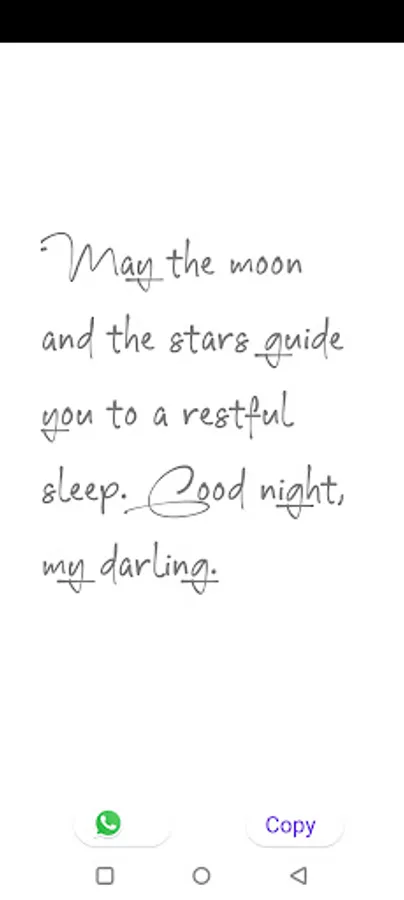 May the moon
and the stars guide
you to a restful
sleep. Good night,
my darling.
Copy